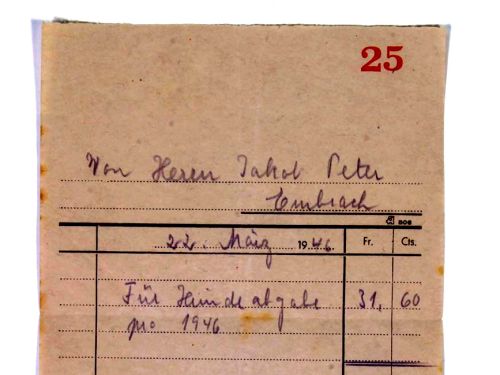 25
Von Herrn Jakob Peter
Embrach
22. März 1946 Fr. Cts.
Für Hundeabgabe 31, 60
pro 1946